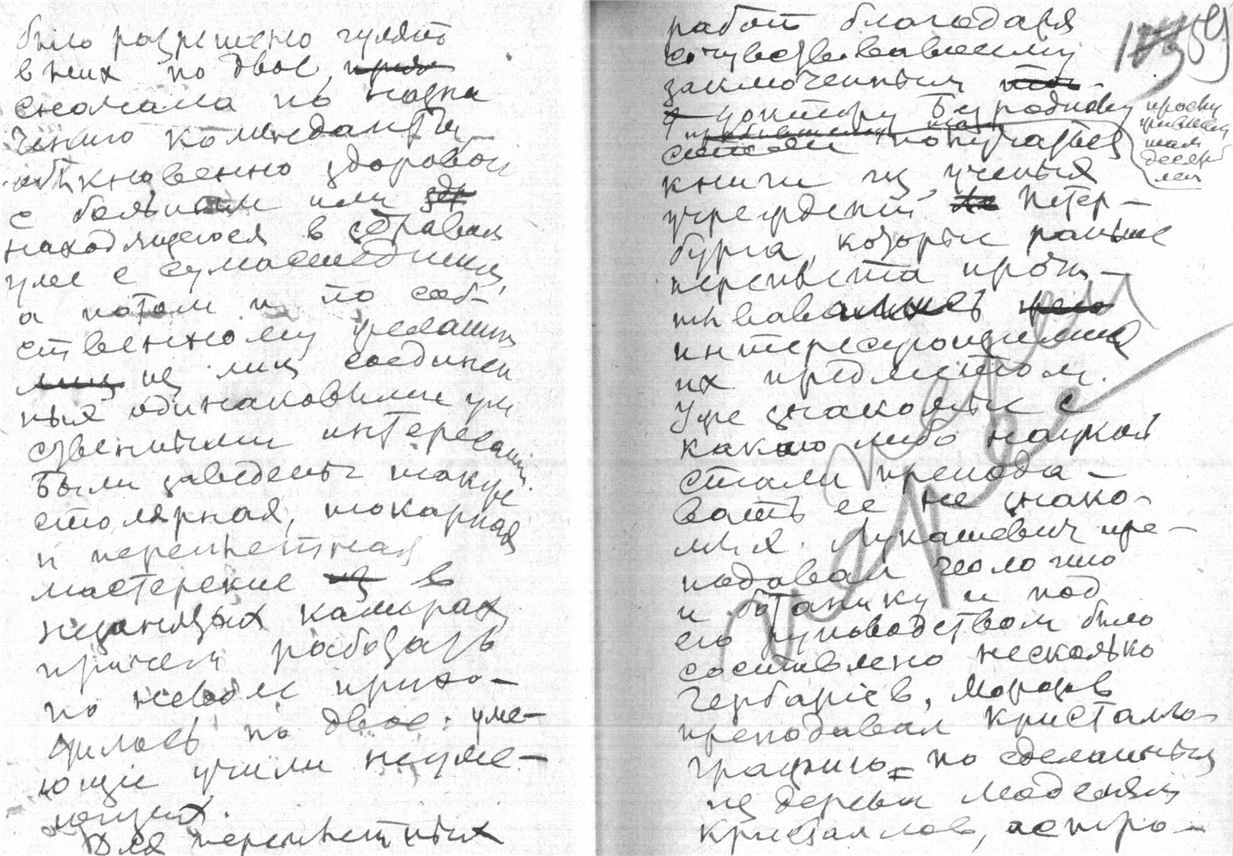 было разрешено гулять
в них по двое,
сначала по назна-
чению коменданта,
обыкновенно здоровой
с больным или
находящегося в здравом
уме с сумасшедшим,
а потом и по соб-
ственному желанию
из лиц соединен
ных одинаковыми ум
ственными интересами
Были заведены также
столярная, токарная
и переплетная
мастерские в
незанятых камерах,
причем работать
по неволе прихо-
дилось по двое: уме-
ющіе учили неуме-
ющих.
Для переплетных
1759
работ благодаря
сочувствовавшему
заключенным
доктору Безроднову
прожившему
там
десять
лет
получались
книги из ученых
учреждений Петер-
бурга, которые раньше
переплета прочи-
тывались
интересующимися
их предметом.
Уже знакомые с
какою либо наукой
стали препода-
вать ее не знако-
мым. Лукашевич пре-
подавал геологию
и ботанику и под
его руководством было
составлено несколько
гербаріев, Морозов
преподавал кристалло-
графию по сделанным
из дерева моделям
кристаллов, астро-